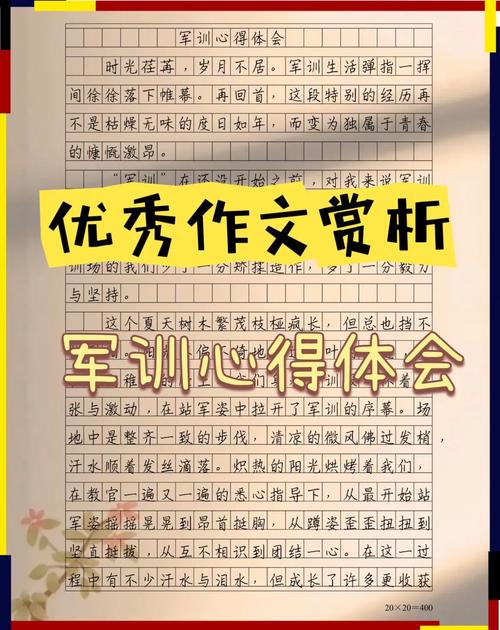 军训心得体会
时光荏苒，岁月不居。军训生活弹指一挥
间徐徐落下帷幕。再回首，这段特别的经历再
不是枯燥无味的度日如年，而变为独属于青春
的慷慨激昂。
“军训”在还没开始之前，对我来说军训
优秀作文赏析
训场的我们少了一分矫揉造作，多了一分毅力
与坚持。
这个夏天树木繁茂枝桠疯长，但总也挡不
军训心得体会
张与激动，在站军姿中拉开了军训的序幕。场
地中是整齐一致的步伐，清凉的微风佛过发梢，
汗水顺着发丝滴落。炽热的阳光烘烤着我们，
在教官一遍又一遍的悉心指导下，从最开始站
军姿摇摇晃晃到昂首挺胸，从蹲姿歪歪扭扭到
坚直挺拔，从互不相识到团结一心。在这一过
程中有不少汗水与泪水，但成长了许多更收获
20×20=400